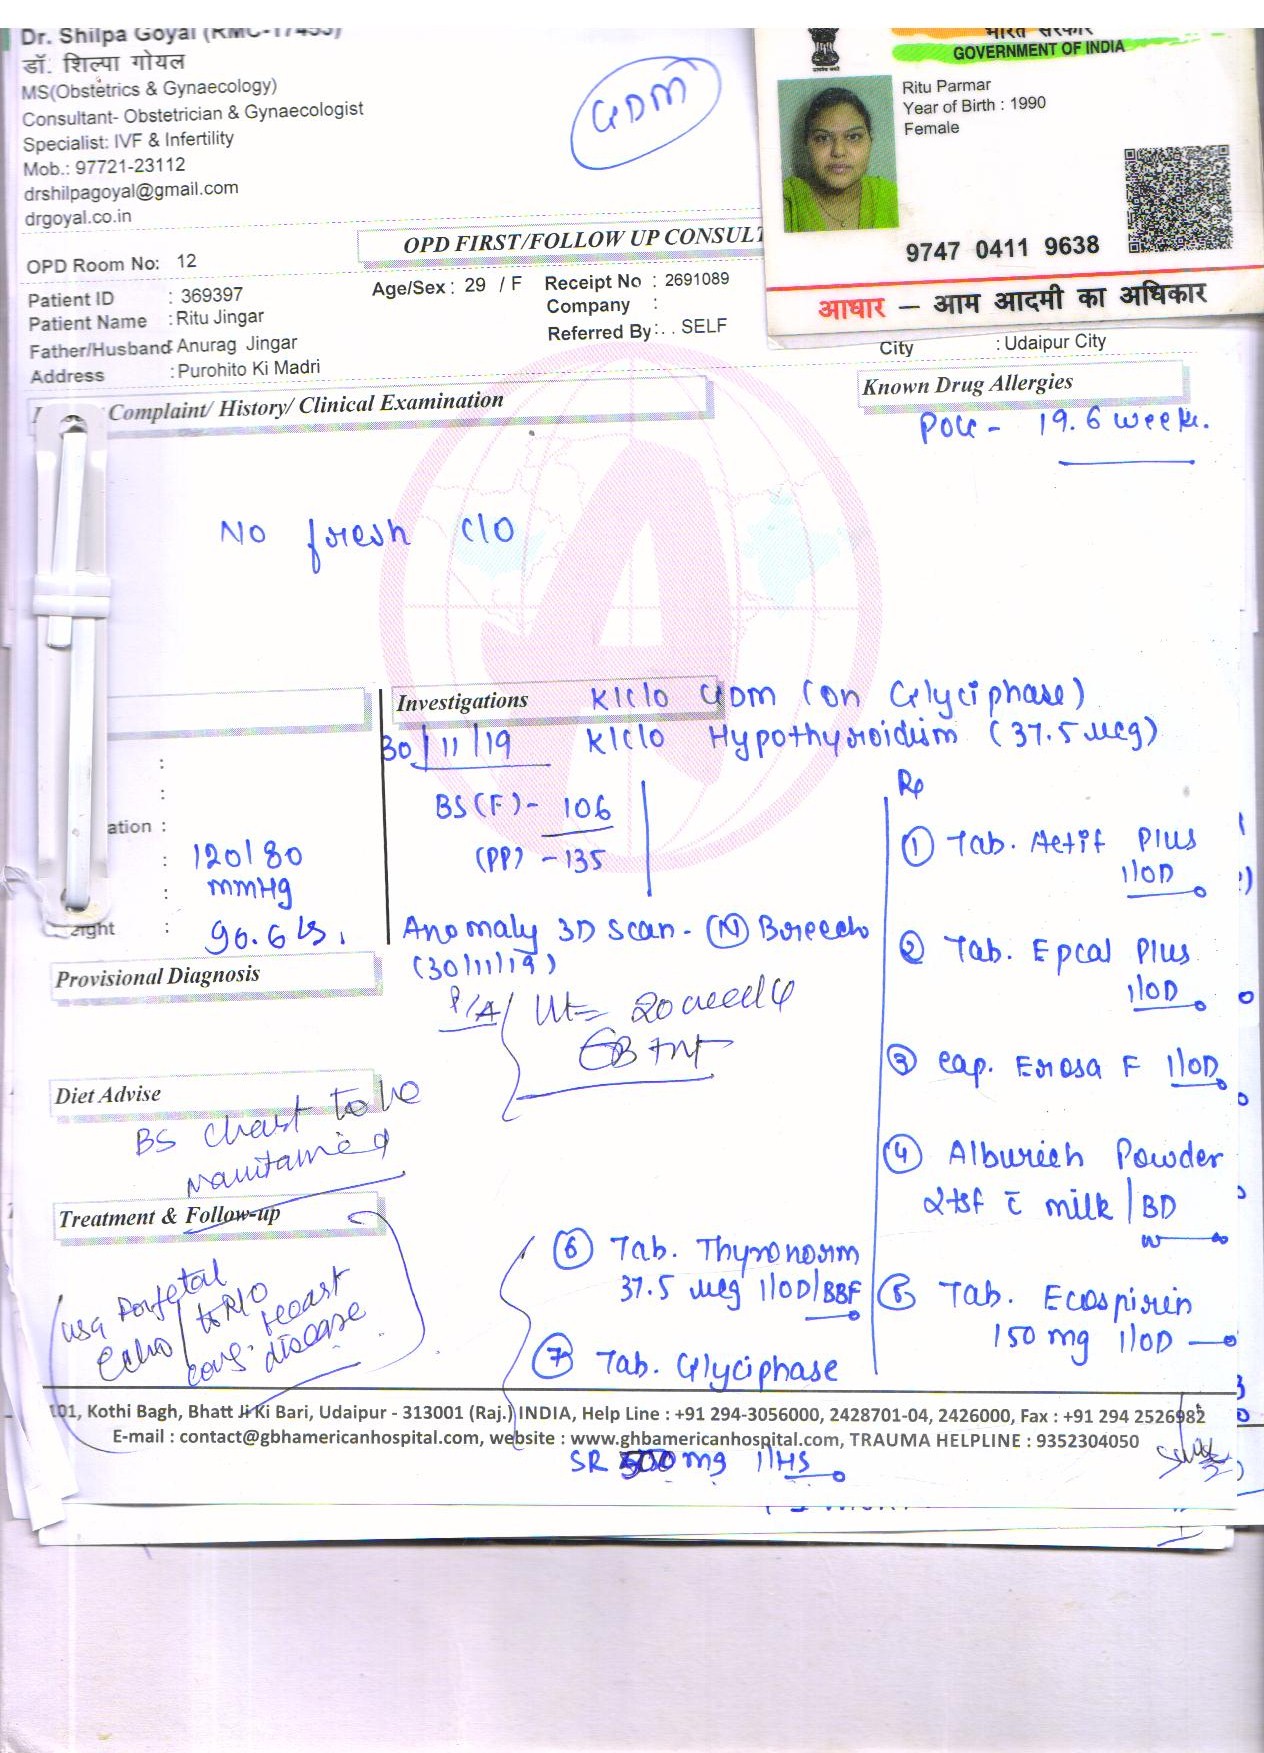 Dr. Shilpa Goyal (RMC-17455)
डॉ. शिल्पा गोयल
MS(Obstetrics & Gynaecology)
Consultant- Obstetrician & Gynaecologist
Specialist: IVF & Infertility
Mob.: 97721-23112
drshilpagoyal@gmail.com
drgoyal.co.in
GDM
भारत सरकार
GOVERNMENT OF INDIA
Ritu Parmar
Year of Birth : 1990
Female
9747 0411 9638
आधार — आम आदमी का अधिकार
OPD Room No: 12
OPD FIRST/FOLLOW UP CONSULT
Patient ID : 369397
Age/Sex : 29 / F
Receipt No : 2691089
Patient Name : Ritu Jingar
Company :
Father/Husband : Anurag Jingar
Referred By : . . SELF
Address : Purohito Ki Madri
City : Udaipur City
Complaint/ History/ Clinical Examination
Known Drug Allergies
POG - 19.6 week.
No fresh C/O
Investigations
K/C/O GDM (on Glyciphase)
30/11/19 K/C/O Hypothyroidism (37.5 mcg)
BS (F) - 106
(PP) - 135
ation :
: 120/80
: mmHg
eight : 90.6
Anomaly 3D scan - (N) Breech
(30/11/19)
P/A / Ut = 20 week
Provisional Diagnosis
Diet Advise
BS chart to be
maintained
Treatment & Follow-up
fetal
echo to R/O
heart
disease
Rp
① Tab. Actif Plus
1/OD
② Tab. Epcal Plus
1/OD
③ Cap. Erosa F 1/OD
④ Alburich Powder
2tsf c̄ milk / BD
⑤ Tab. Ecospirin
150 mg 1/OD
⑥ Tab. Thyronorm
37.5 mcg 1/OD/BBF
⑦ Tab. Glyciphase
101, Kothi Bagh, Bhatt Ji Ki Bari, Udaipur - 313001 (Raj.) INDIA, Help Line : +91 294-3056000, 2428701-04, 2426000, Fax : +91 294 2526982
E-mail : contact@gbhamericanhospital.com, website : www.ghbamericanhospital.com, TRAUMA HELPLINE : 9352304050
SR 500 mg 1/HS